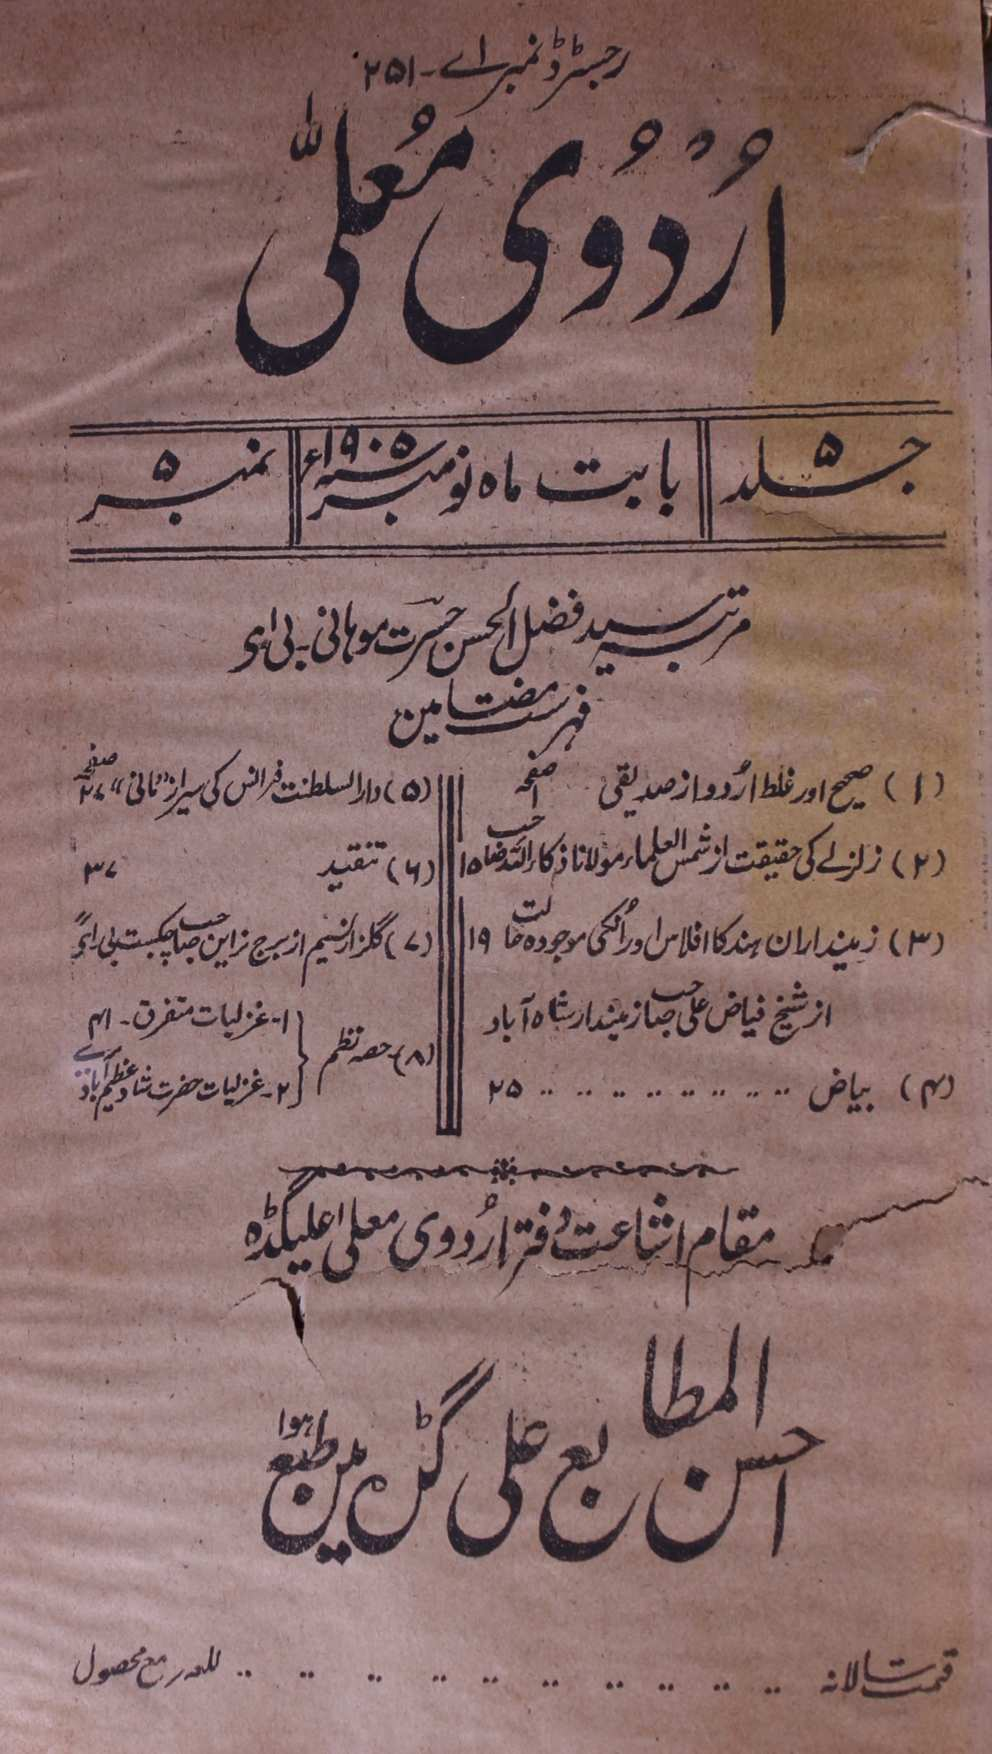 رجسٹرڈ نمبر اے - ۲۵۱
اُرْدُوی مُعلّٰی
جلد ۵
بابت ماہ نومبر سنہ ۱۹۰۵ء
نمبر ۵
مرتبہ سید فضل الحسن حسرت موہانی - بی اے
فہرست مضامین
صفحہ
(۱) صحیح اور غلط اُردو از صدیقی ۱
(۲) زلزلے کی حقیقت از شمس العلماء مولانا ذکاء اللہ صاحب ۱۵
(۳) زمینداران ہند کا افلاس اور اُنکی موجودہ حالت ۱۹
از شیخ فیاض علی صاحب زمیندار شاہ آباد
(۴) بیاض .. .. .. .. .. .. .. .. ۲۵
صفحہ
(۵) دارالسلطنت فرانس کی سیر از "مانی" ۲۷
(۶) تنقید ۳۷
(۷) گلزار نسیم از برج نراین صاحب چکبست بی اے
(۸) حصہ نظم
۱ - غزلیات متفرق - ۴۱
۲ - غزلیات حضرت شاد عظیم آبادی
مقام اشاعت دفتر اُردوی معلی علیگڈہ
احسن المطابع علی گڈہ میں طبع ہوا
قیمت سالانہ .. .. .. .. .. .. .. .. .. مع محصول